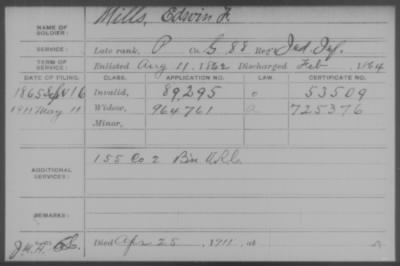 Mills, Edwin F.
NAME OF SOLDIER:
SERVICE: Late rank, P Co. G, 88 Reg't Ind. Inf.
TERM OF SERVICE: Enlisted Aug 11, 1862 Discharged Feb , 1864
DATE OF FILING. CLASS. APPLICATION NO. LAW. CERTIFICATE NO.
1865 16 Invalid, 89,295 53509
1911 May 11 Widow, 964,761 a 725376
Minor,
ADDITIONAL SERVICES: 155 Co 2 Bn V.R.C.
REMARKS:
Died Apr 25, 1911, at